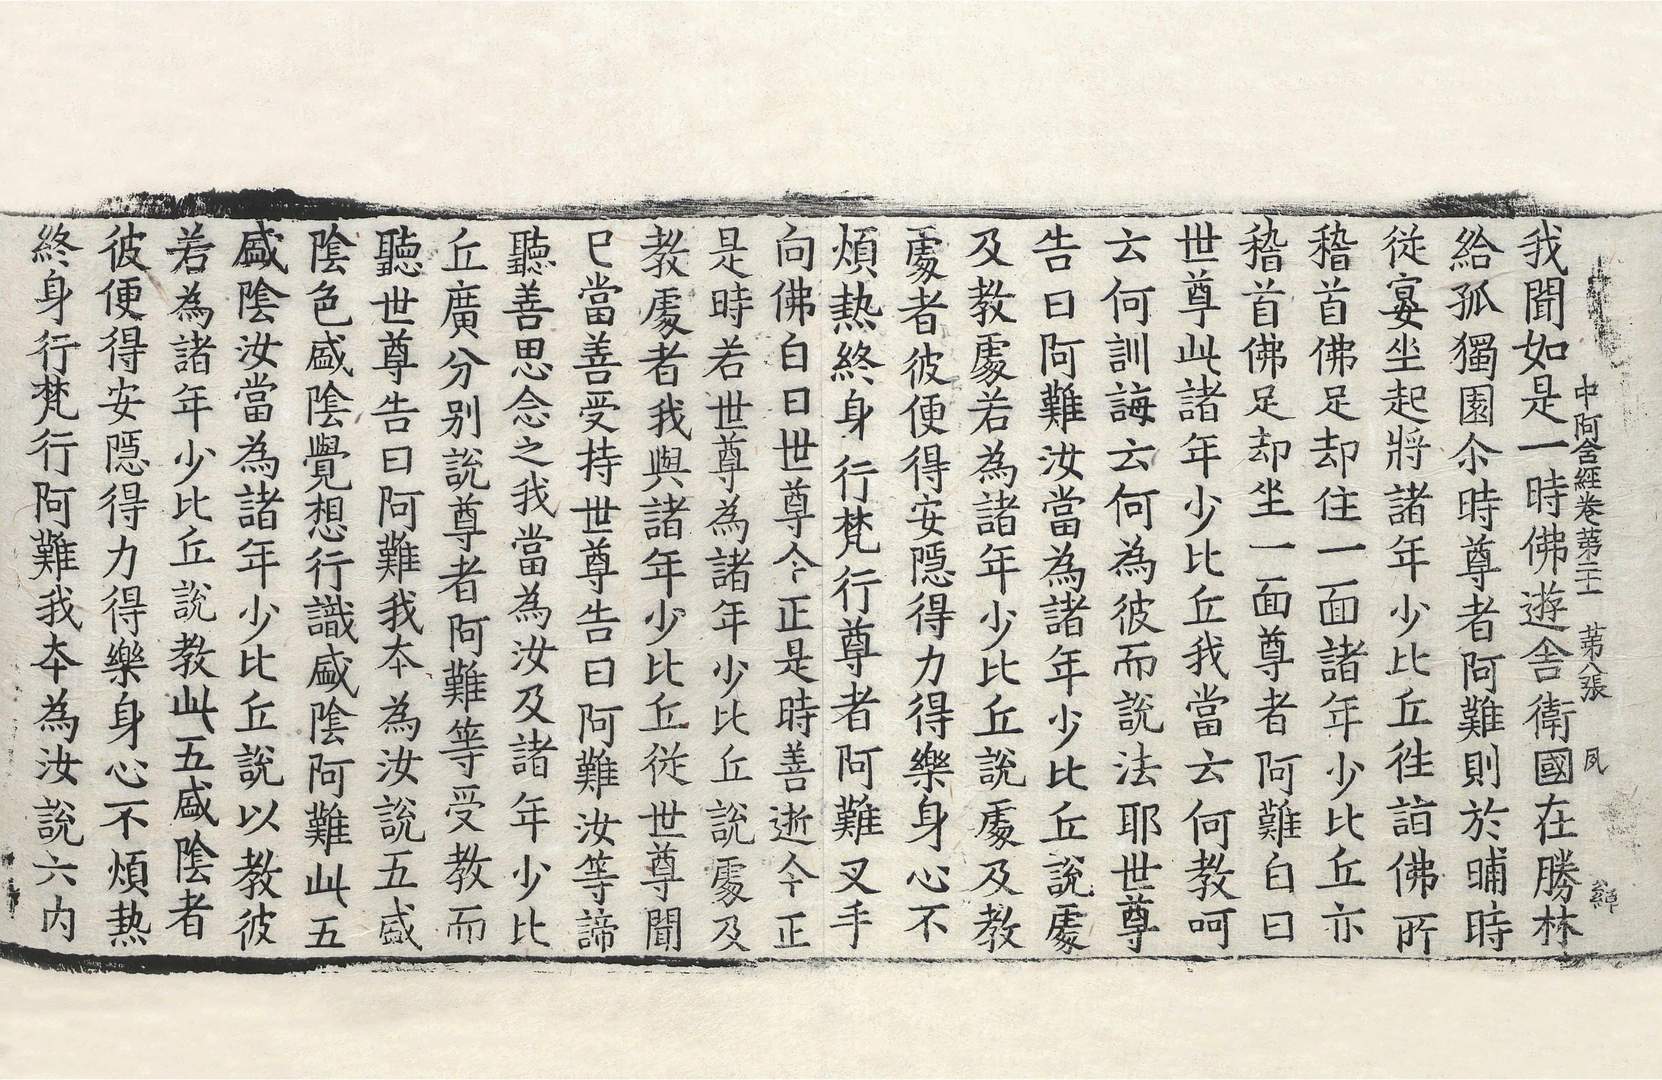 中阿含經卷第二十一　第八張　夙
我聞如是一時佛遊舍衛國在勝林
給孤獨園尒時尊者阿難則於晡時
從宴坐起將諸年少比丘往詣佛所
稽首佛足却住一面諸年少比丘亦
稽首佛足却坐一面尊者阿難白曰
世尊此諸年少比丘我當云何教呵
云何訓誨云何為彼而說法耶世尊
告曰阿難汝當為諸年少比丘說處
及教處若為諸年少比丘說處及教
處者彼便得安隱得力得樂身心不
煩熱終身行梵行尊者阿難叉手
向佛白曰世尊今正是時善逝今正
是時若世尊為諸年少比丘說處及
教處者我與諸年少比丘從世尊聞
已當善受持世尊告曰阿難汝等諦
聽善思念之我當為汝及諸年少比
丘廣分別說尊者阿難等受教而
聽世尊告曰阿難我本為汝說五盛
陰色盛陰覺想行識盛陰阿難此五
盛陰汝當為諸年少比丘說以教彼
若為諸年少比丘說教此五盛陰者
彼便得安隱得力得樂身心不煩熱
終身行梵行阿難我本為汝說六内